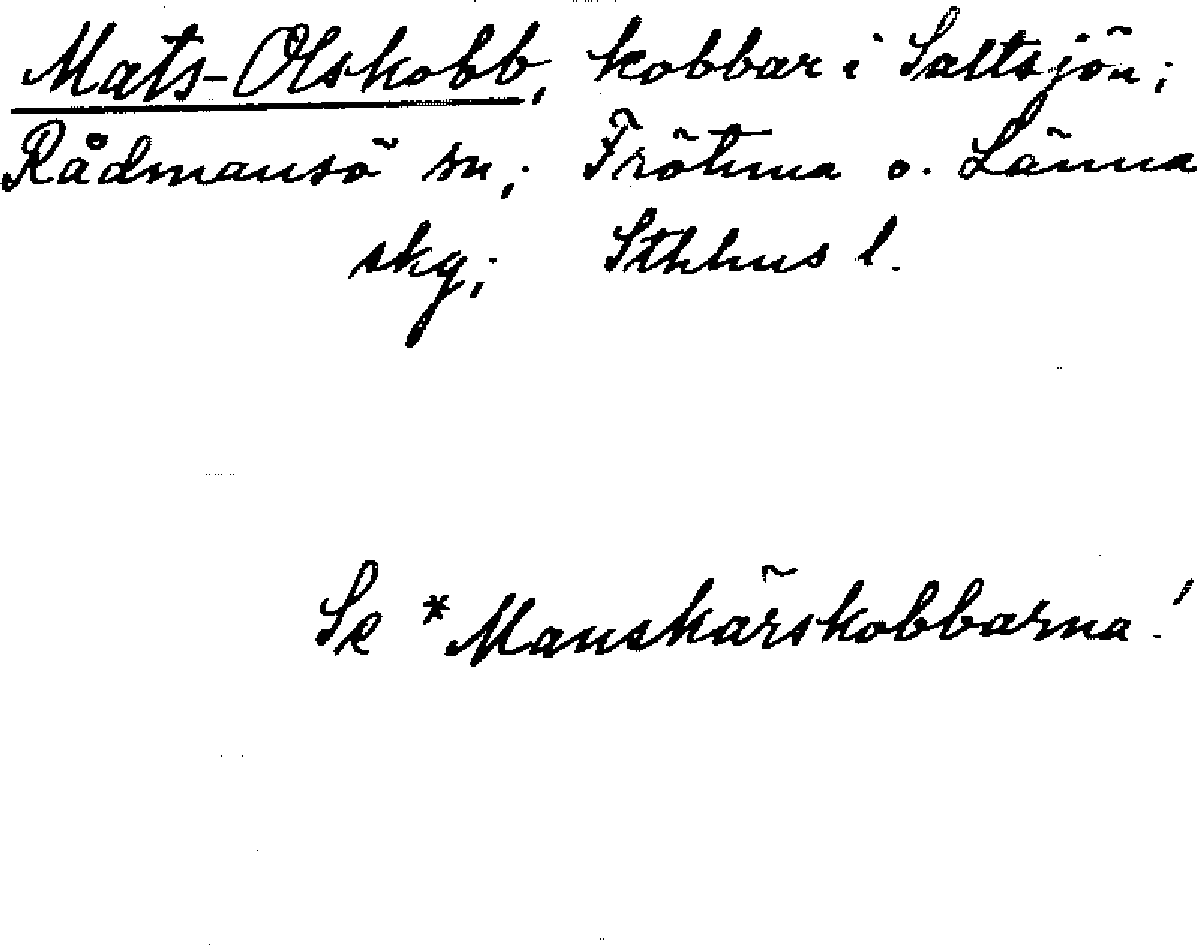 Mats-Olskobb, kobbar i Saltsjön;
Rådmansö sn; Frötuna o. Länna
skg; Sthlms l.
Se *Manskärskobbarna!